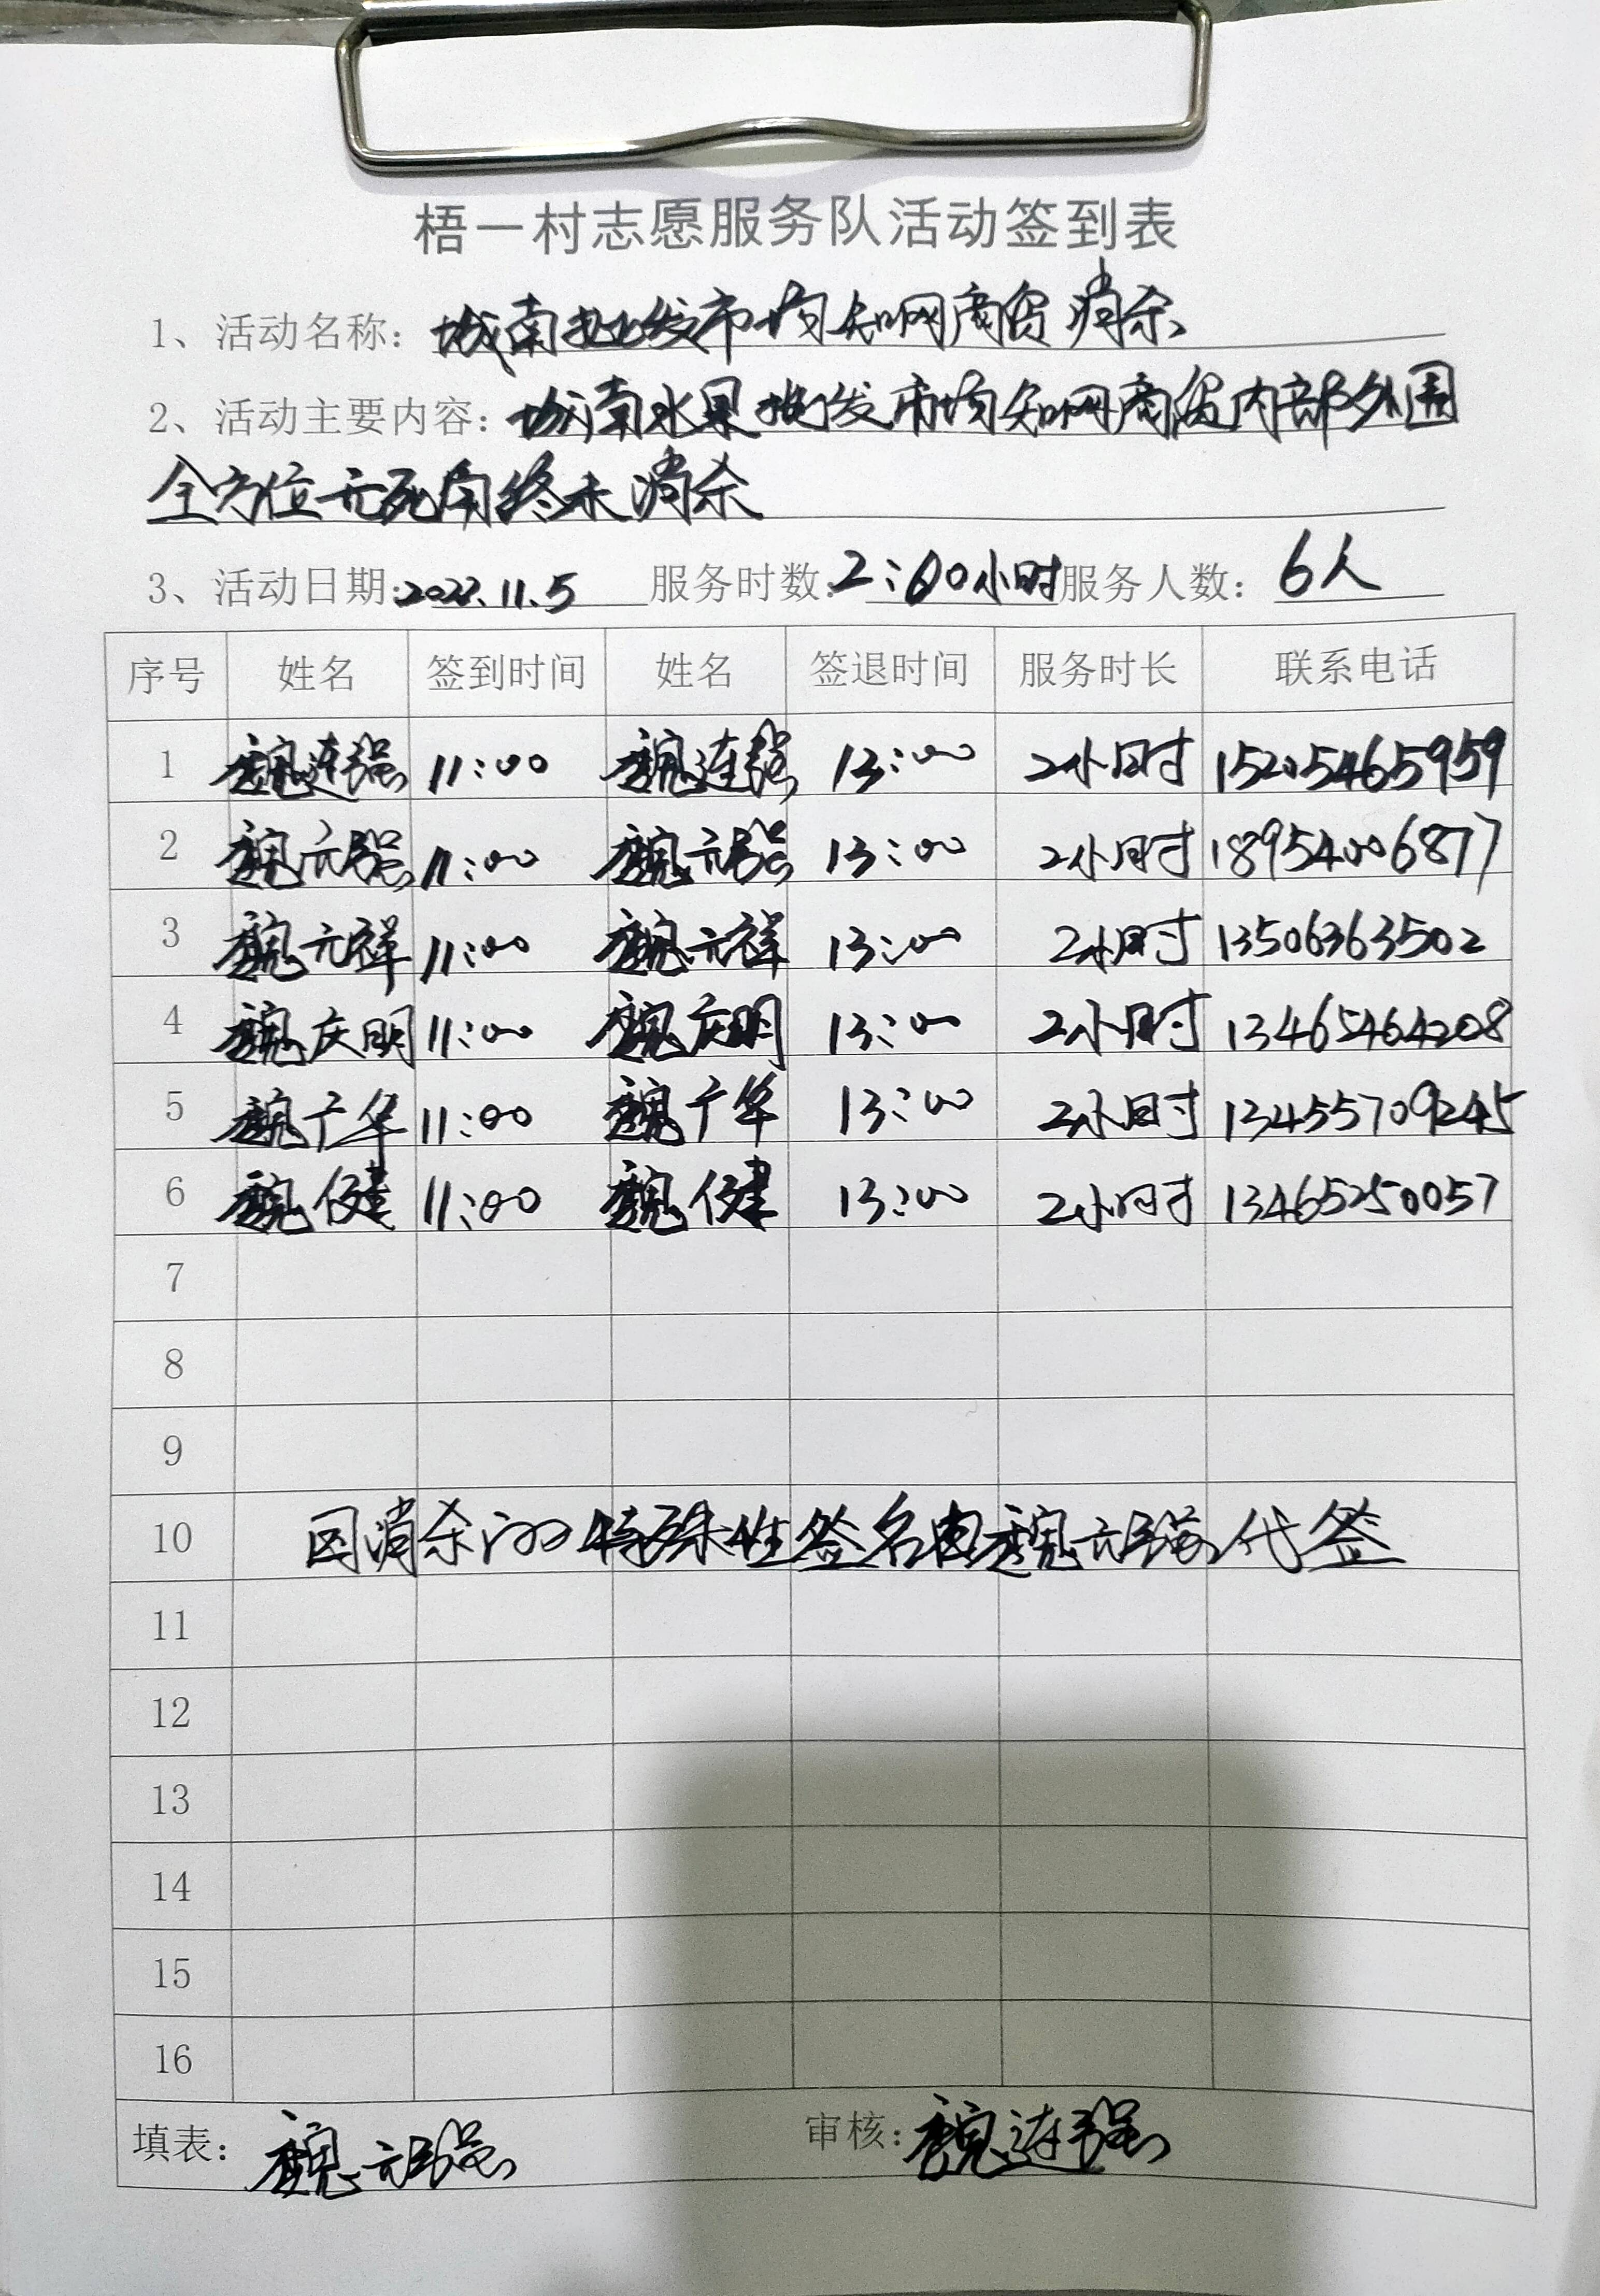 梧一村志愿服务队活动签到表
1、活动名称：城南批发市场知网商贸消杀
2、活动主要内容：城南水果批发市场知网商贸内部外围
全方位无死角终末消杀
3、活动日期：2022.11.5 服务时数：2:00小时 服务人数：6人
序号 姓名 签到时间 姓名 签退时间 服务时长 联系电话
1 魏连强 11:00 魏连强 13:00 2小时 15205465959
2 魏元强 11:00 魏元强 13:00 2小时 18954006877
3 魏元祥 11:00 魏元祥 13:00 2小时 13506363502
4 魏庆明 11:00 魏庆明 13:00 2小时 13465464208
5 魏广华 11:00 魏广华 13:00 2小时 13455709245
6 魏健 11:00 魏健 13:00 2小时 13465250057
7
8
9
10 因消杀的特殊性签名由魏元强代签
11
12
13
14
15
16
填表：魏元强 审核：魏连强